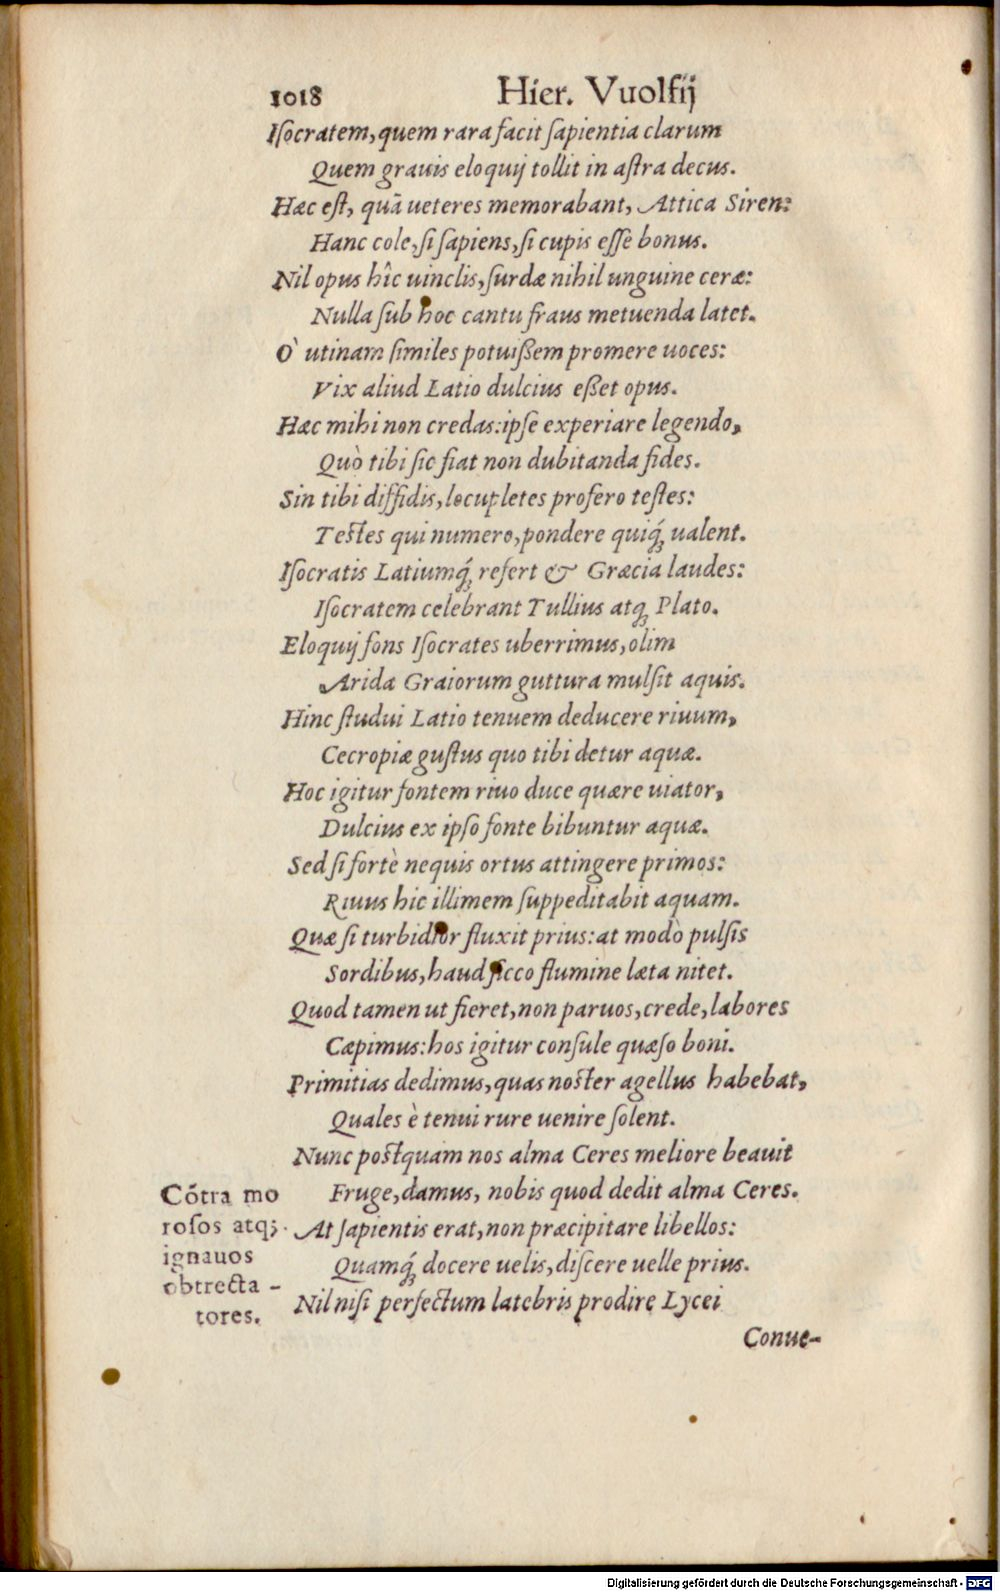 1018
Hier. Vuolfij
Iſocratem, quem rara facit ſapientia clarum
Quem grauis eloquij tollit in aſtra decus.
Hæc eſt, quā ueteres memorabant, Attica Siren:
Hanc cole, ſi ſapiens, ſi cupis eſſe bonus.
Nil opus hîc uinclis, ſurdæ nihil unguine ceræ:
Nulla ſub hoc cantu fraus metuenda latet.
Ò utinam ſimiles potuißem promere uoces:
Vix aliud Latio dulcius eßet opus.
Hæc mihi non credas: ipſe experiare legendo,
Quò tibi ſic fiat non dubitanda fides.
Sin tibi diffidis, locupletes profero teſtes:
Teſtes qui numero, pondere quiq́ꝫ ualent.
Iſocratis Latiumq́ꝫ refert & Græcia laudes:
Iſocratem celebrant Tullius atqꝫ Plato.
Eloquij fons Iſocrates uberrimus, olim
Arida Graiorum guttura mulſit aquis.
Hinc ſtudui Latio tenuem deducere riuum,
Cecropiæ guſtus quo tibi detur aquæ.
Hoc igitur fontem riuo duce quære uiator,
Dulcius ex ipſo fonte bibuntur aquæ.
Sed ſi fortè nequis ortus attingere primos:
Riuus hic illimem ſuppeditabit aquam.
Quæ ſi turbidior fluxit prius: at modò pulſis
Sordibus, haud ſicco flumine læta nitet.
Quod tamen ut fieret, non paruos, crede, labores
Cæpimus: hos igitur conſule quæſo boni.
Primitias dedimus, quas noſter agellus habebat,
Quales è tenui rure uenire ſolent.
Nunc poſtquam nos alma Ceres meliore beauit
Fruge, damus, nobis quod dedit alma Ceres.
At ſapientis erat, non præcipitare libellos:
Quamq́ꝫ docere uelis, diſcere uelle prius.
Nil niſi perfectum latebris prodire Lycei
Conue-
Cōtra mo
roſos atqꝫ
ignauos
obtrecta-
tores.
Digitalisierung gefördert durch die Deutsche Forschungsgemeinschaft - DFG